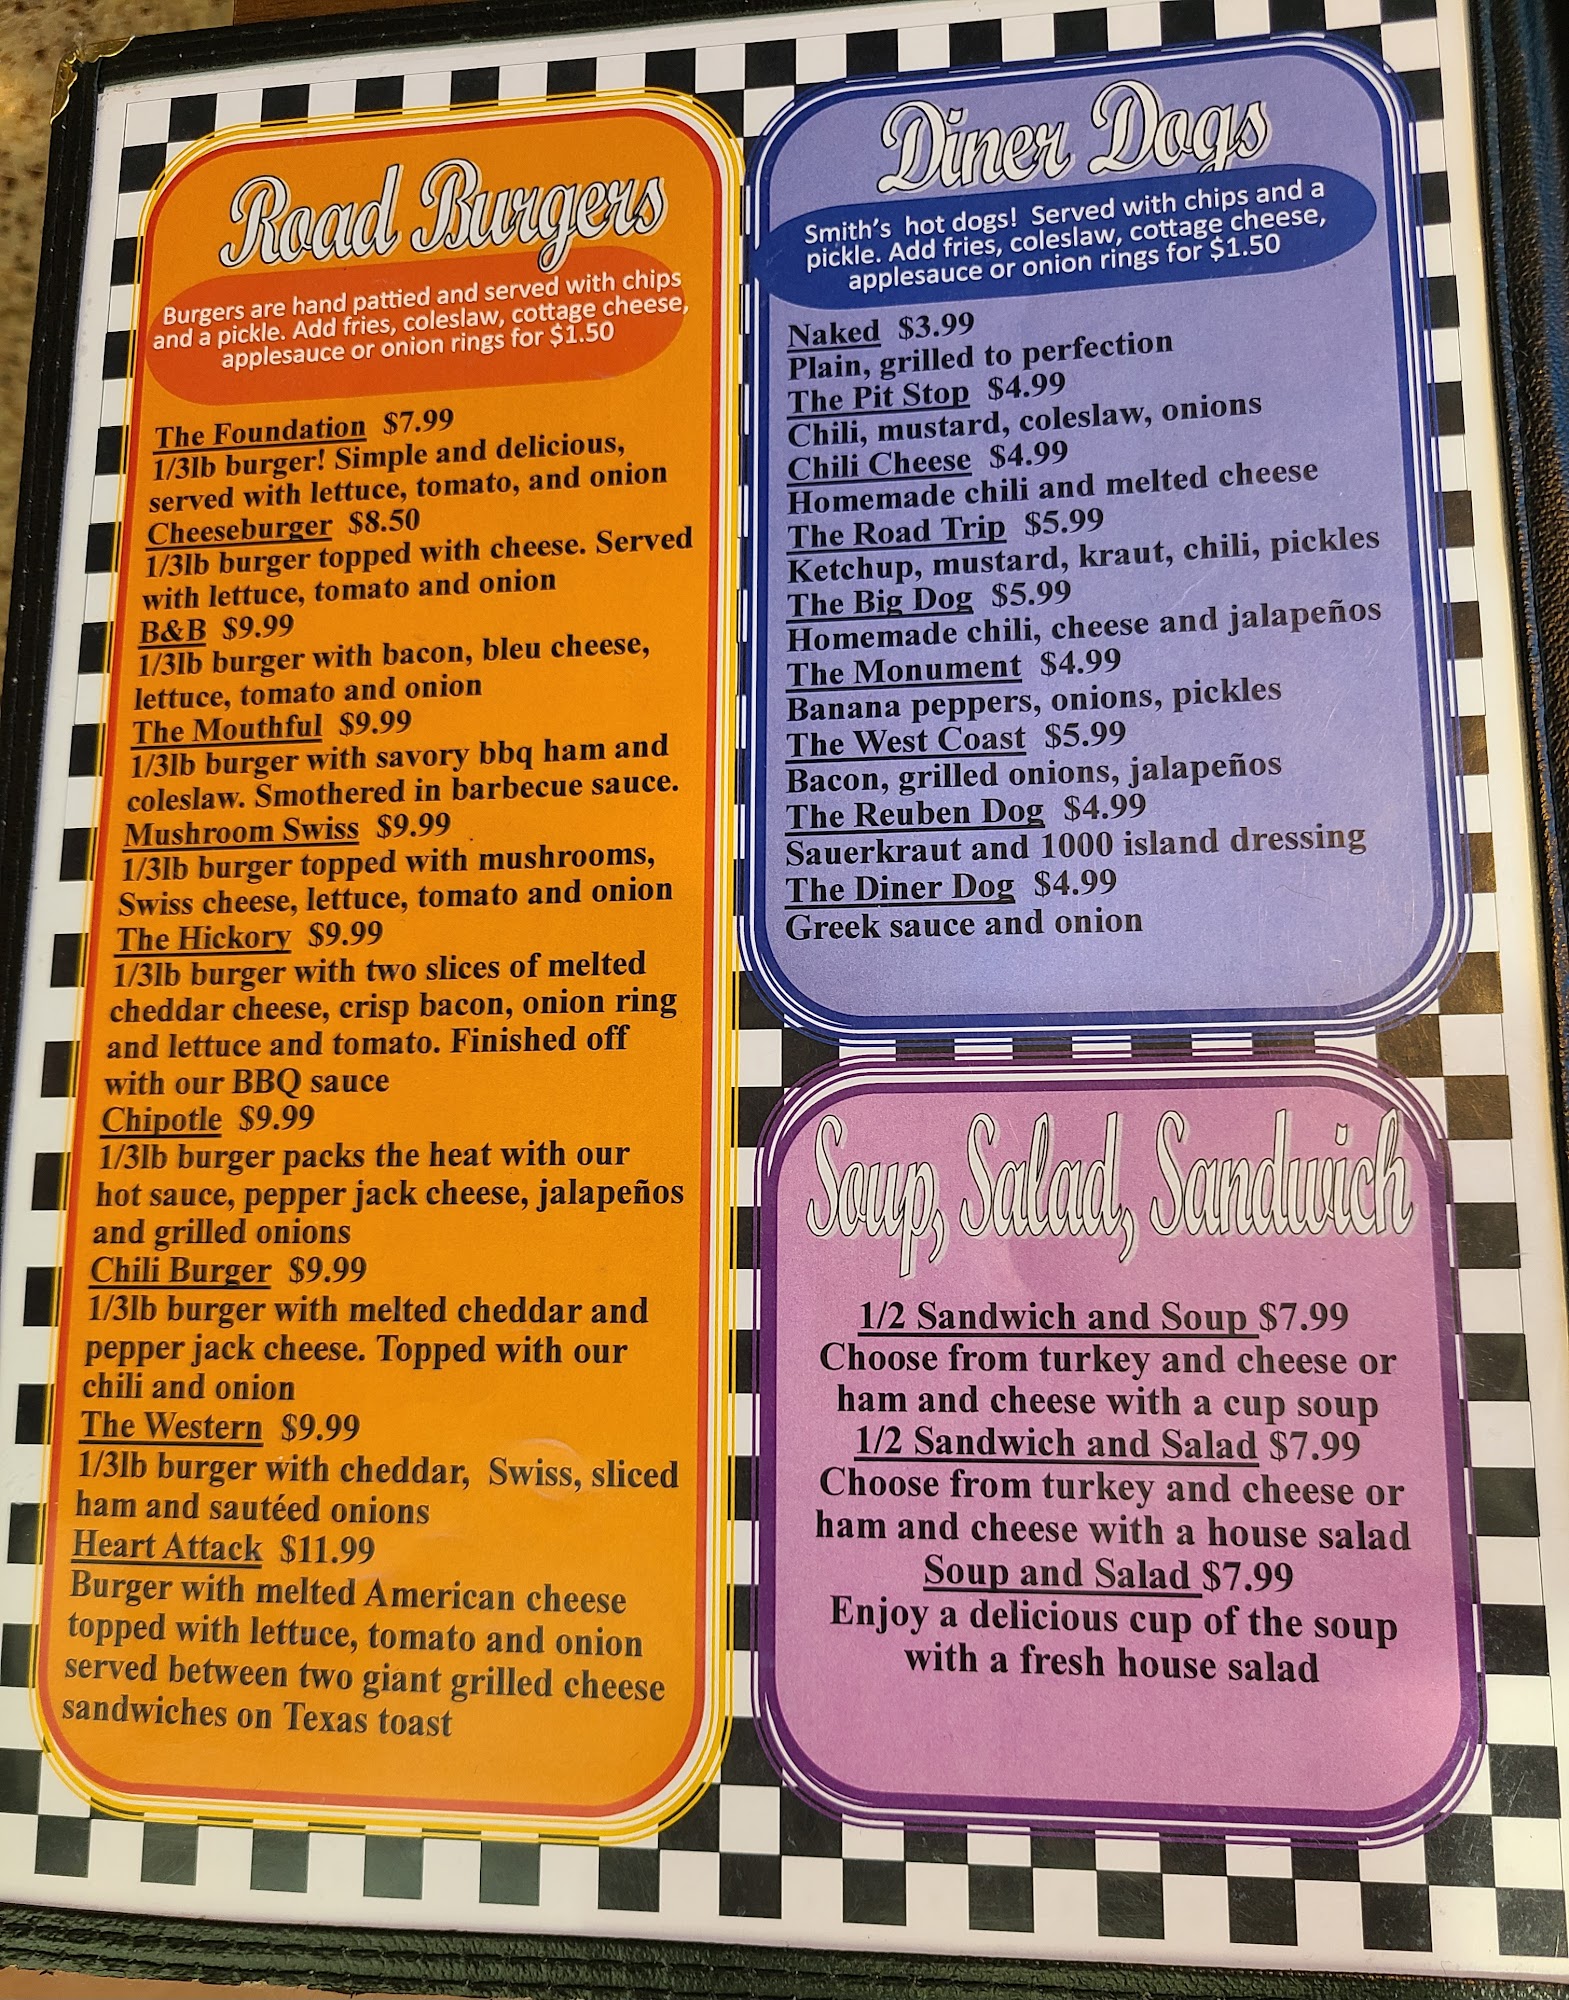 Road Burgers
Burgers are hand pattied and served with chips
and a pickle. Add fries, coleslaw, cottage cheese,
applesauce or onion rings for $1.50
The Foundation $7.99
1/3lb burger! Simple and delicious,
served with lettuce, tomato, and onion
Cheeseburger $8.50
1/3lb burger topped with cheese. Served
with lettuce, tomato and onion
B&B $9.99
1/3lb burger with bacon, bleu cheese,
lettuce, tomato and onion
The Mouthful $9.99
1/3lb burger with savory bbq ham and
coleslaw. Smothered in barbecue sauce.
Mushroom Swiss $9.99
1/3lb burger topped with mushrooms,
Swiss cheese, lettuce, tomato and onion
The Hickory $9.99
1/3lb burger with two slices of melted
cheddar cheese, crisp bacon, onion ring
and lettuce and tomato. Finished off
with our BBQ sauce
Chipotle $9.99
1/3lb burger packs the heat with our
hot sauce, pepper jack cheese, jalapeños
and grilled onions
Chili Burger $9.99
1/3lb burger with melted cheddar and
pepper jack cheese. Topped with our
chili and onion
The Western $9.99
1/3lb burger with cheddar, Swiss, sliced
ham and sautéed onions
Heart Attack $11.99
Burger with melted American cheese
topped with lettuce, tomato and onion
served between two giant grilled cheese
sandwiches on Texas toast
Diner Dogs
Smith's hot dogs! Served with chips and a
pickle. Add fries, coleslaw, cottage cheese,
applesauce or onion rings for $1.50
Naked $3.99
Plain, grilled to perfection
The Pit Stop $4.99
Chili, mustard, coleslaw, onions
Chili Cheese $4.99
Homemade chili and melted cheese
The Road Trip $5.99
Ketchup, mustard, kraut, chili, pickles
The Big Dog $5.99
Homemade chili, cheese and jalapeños
The Monument $4.99
Banana peppers, onions, pickles
The West Coast $5.99
Bacon, grilled onions, jalapeños
The Reuben Dog $4.99
Sauerkraut and 1000 island dressing
The Diner Dog $4.99
Greek sauce and onion
Soup, Salad, Sandwich
1/2 Sandwich and Soup $7.99
Choose from turkey and cheese or
ham and cheese with a cup soup
1/2 Sandwich and Salad $7.99
Choose from turkey and cheese or
ham and cheese with a house salad
Soup and Salad $7.99
Enjoy a delicious cup of the soup
with a fresh house salad